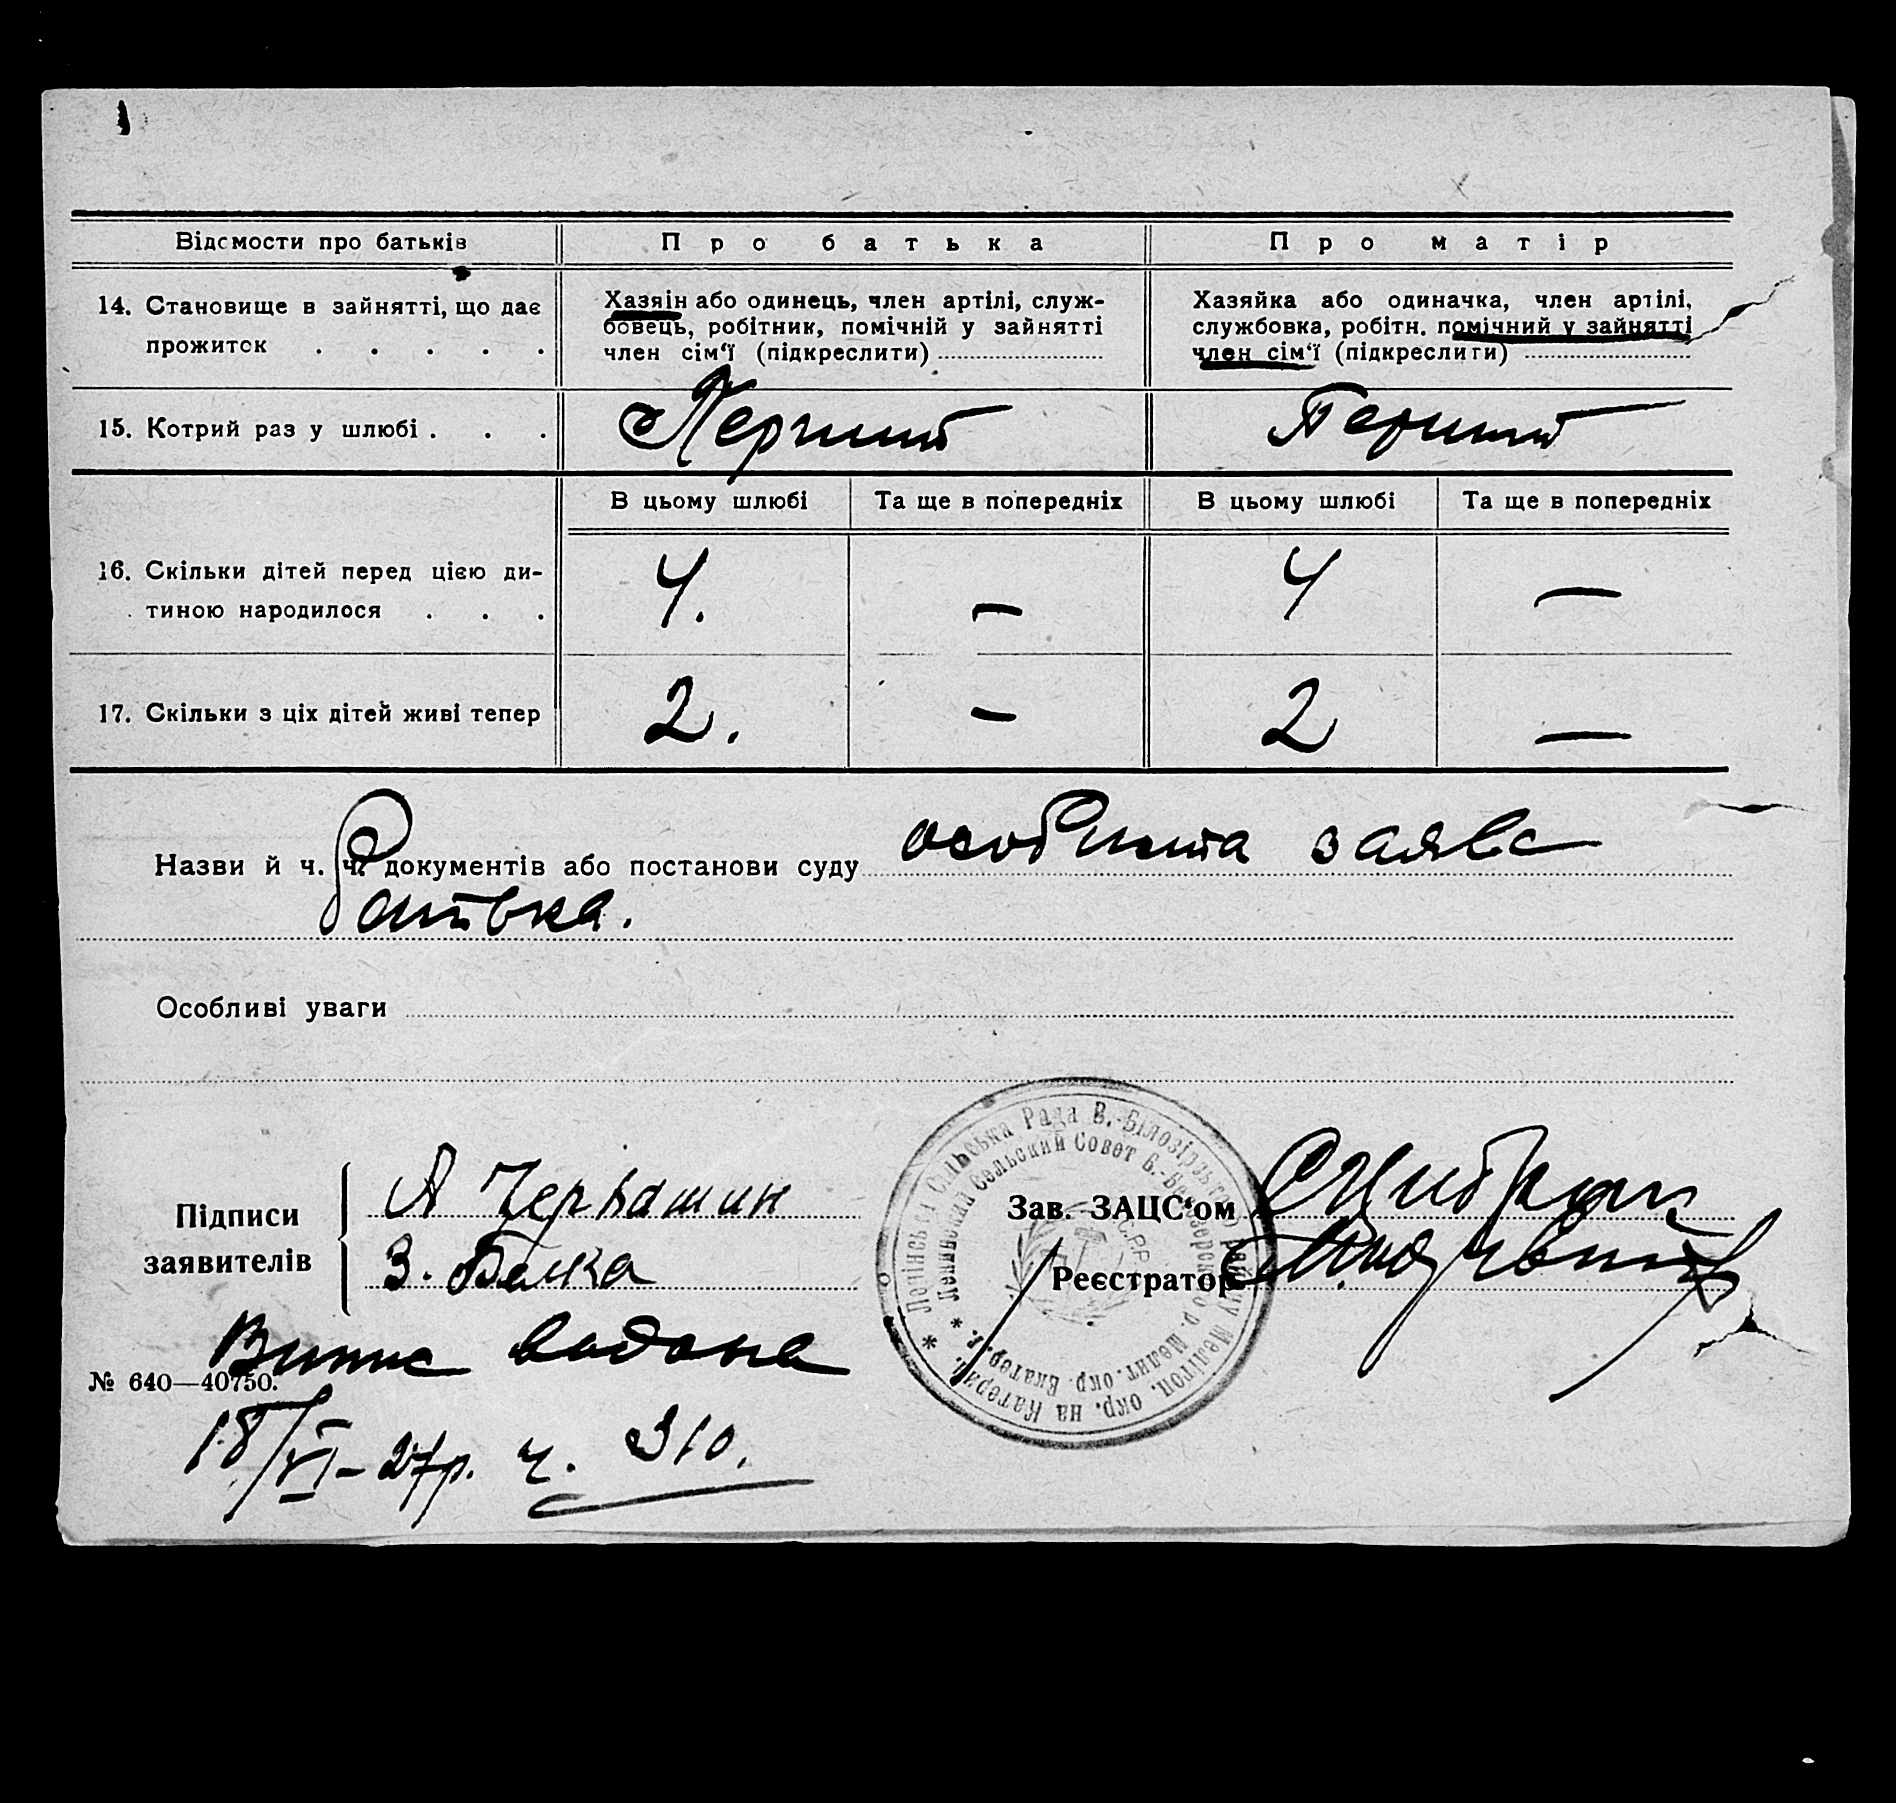 Відомости про батьків
Про батька
Про матір
14. Становище в зайнятті, що дає
прожиток
Хазяїн або одинець, член артілі, служ-
бовець, робітник, помічній у зайнятті
член сім'ї (підкреслити)
Хазяйка або одиначка, член артілі,
службовка, робітн. помічний у зайнятті
член сім'ї (підкреслити)
15. Котрий раз у шлюбі
Перший
Перший
В цьому шлюбі
Та ще в попередніх
В цьому шлюбі
Та ще в попередніх
16. Скільки дітей перед цією ди-
тиною народилося
4.
–
4
–
17. Скільки з ціх дітей живі тепер
2.
–
2
–
Назви й ч. ч. документів або постанови суду особиста заява
батька.
Особливі уваги
Підписи
заявителів
А Чернашин
З. Белка
Зав. ЗАЦС'ом
Реєстратор
Ленінська Сільська Рада В.-Білозірського району Мелітоп. окр. на Катерин.
Ленинский Сельский Совет Б.-Белозерского р. Мелит. окр. Екатер. г.
Випис видана
№ 640—40750.
18/VI–27р. ч. 310.